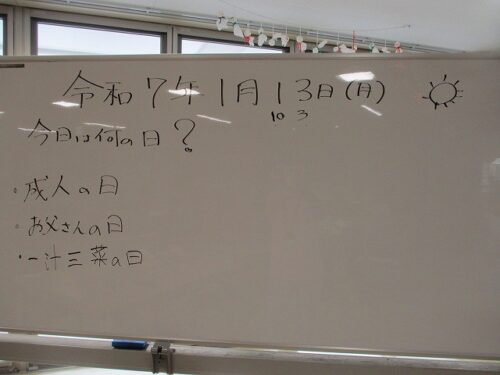 令和7年1月13日(月)
10 3
今日は何の日?
・成人の日
・お父さんの日
・一汁三菜の日